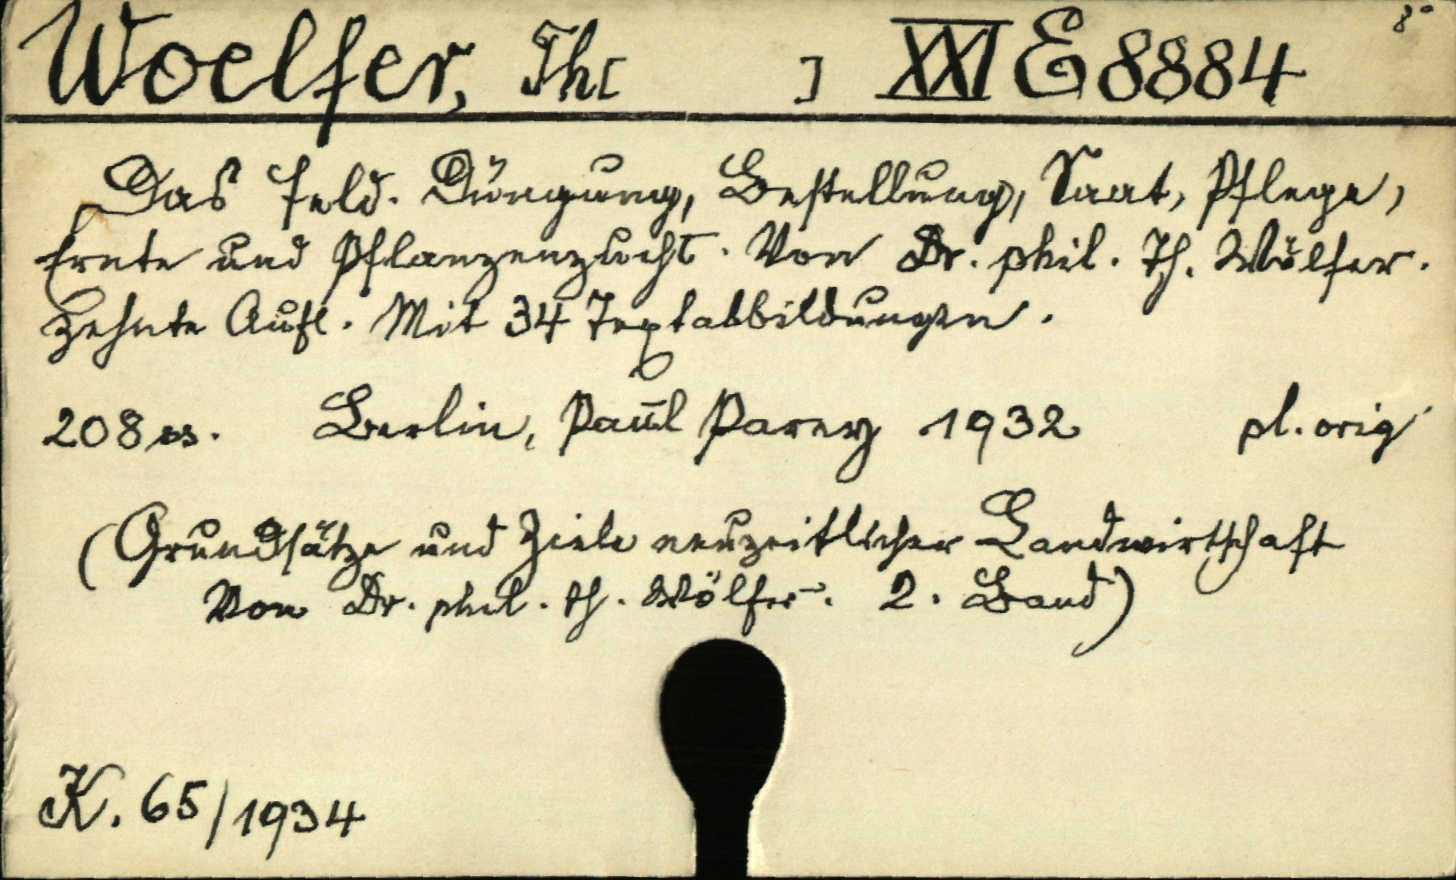 Woelfer, Th[ ] XXI E 8884 8°
Das Feld. Düngung, Bestellung, Saat, Pflege,
Ernte und Pflanzenzucht. Von Dr. phil. Th. Wölfer.
Zehnte Aufl. Mit 34 Textabbildungen.
208 ss. Berlin, Paul Parey 1932 pl. orig
(Grundsätze und Ziele neuzeitlicher Landwirtschaft
Von Dr. phil. Th. Wölfer. 2. Band)
K. 65/1934